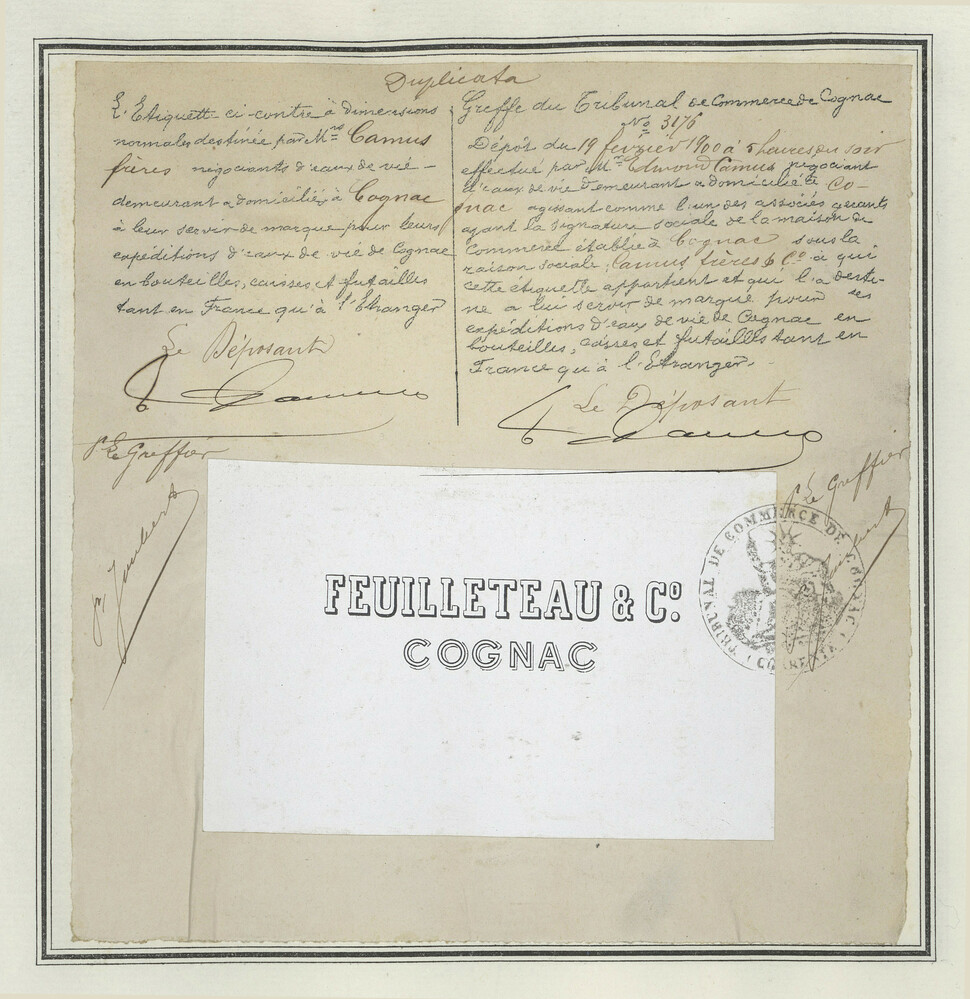 Duplicata
L'Etiquette ci-contre à dimensions
normales destinée par Mrs Camus
frères négociants d'eaux de vie -
demeurant & domiciliés à Cognac
à leur servir de marque pour leurs
expéditions d'eaux de vie de Cognac
en bouteilles, caisses, et futailles
tant en France qu'à l'Etranger
Le Déposant
Camus
Pr Le Greffier
Greffe du Tribunal de Commerce de Cognac
No 3176
Dépôt du 19 février 1900 à 5 heures du soir
effectué par Mr Edmond Camus négociant
d'eaux de vie demeurant & domicilié à Co-
gnac agissant comme l'un des associés gérants
ayant la signature sociale de la maison de
commerce établie à Cognac sous la
raison sociale: Camus frères & Co à qui
cette étiquette appartient et qui l'a desti-
né a lui servir de marque pour ses
expéditions d'eaux de vie de Cognac en
bouteilles, caisses et futailles tant en
France qu'à l'Etranger.-
Le Déposant
Camus
Pr Le Greffier
TRIBUNAL DE COMMERCE DE COGNAC
FEUILLETEAU & Co.
COGNAC